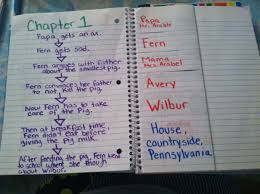 Chapter 1
Papa gets an ax.
Fern gets sad.
Fern argues with father
about the smallest pig.
Fern convinces her father
to not kill the pig.
Now Fern has to take
care of the Pig.
Then at breakfast time
Fern didn't eat before
giving the pig milk.
After feeding the pig, Fern went
to school where she though
about Wilbur.
Papa
Mr. Arable
Fern
Mama
Mrs. Arabel
Avery
Wilbur
House,
countryside,
Pennsylvania